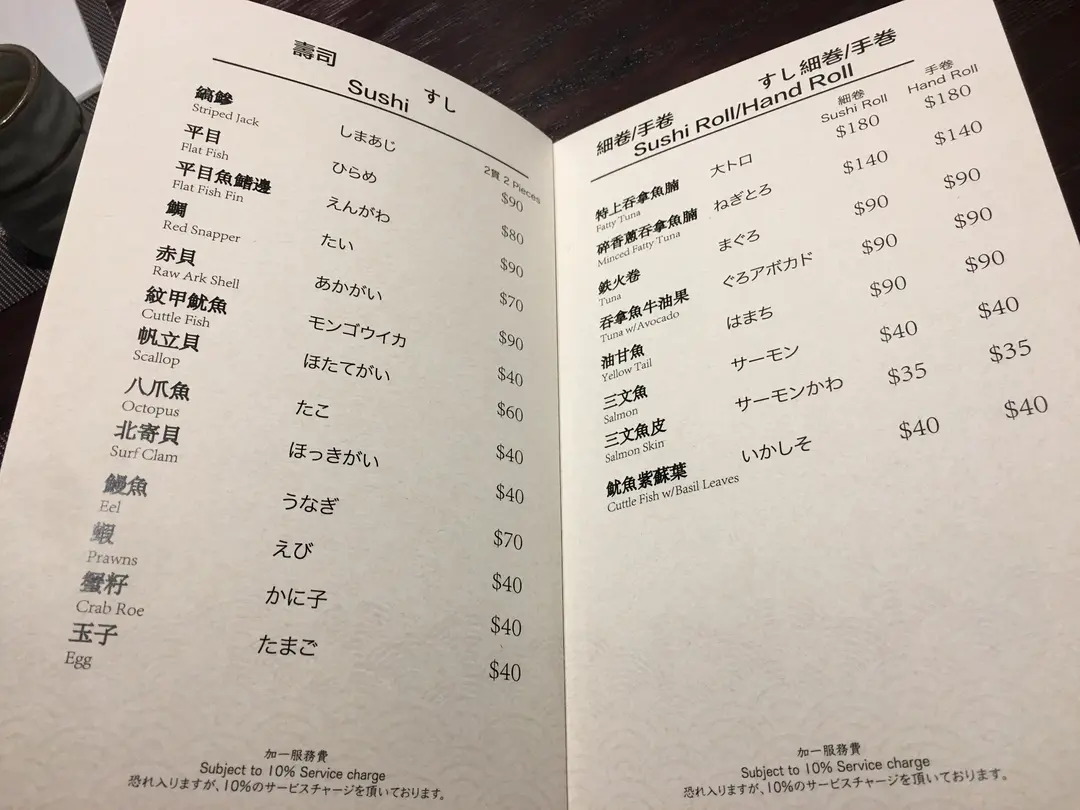 壽司 すし
Sushi
2貫 2 Pieces
鎬鰺 しまあじ $90
Striped Jack
平目 ひらめ $80
Flat Fish
平目魚鰭邊 えんがわ $90
Flat Fish Fin
鯛 たい $70
Red Snapper
赤貝 あかがい $90
Raw Ark Shell
紋甲魷魚 モンゴウイカ $40
Cuttle Fish
帆立貝 ほたてがい $60
Scallop
八爪魚 たこ $40
Octopus
北寄貝 ほっきがい $40
Surf Clam
鰻魚 うなぎ $70
Eel
蝦 えび $40
Prawns
蟹籽 かに子 $40
Crab Roe
玉子 たまご $40
Egg
加一服務費
Subject to 10% Service charge
恐れ入りますが、10%のサービスチャージを頂いております。
細卷/手卷 すし細巻/手巻
Sushi Roll/Hand Roll
細卷 手卷
Sushi Roll Hand Roll
特上吞拿魚腩 大トロ $180 $180
Fatty Tuna
碎香蔥吞拿魚腩 ねぎとろ $140 $140
Minced Fatty Tuna
鉄火卷 まぐろ $90 $90
Tuna
吞拿魚牛油果 ぐろアボカド $90 $90
Tuna w/Avocado
油甘魚 はまち $90 $90
Yellow Tail
三文魚 サーモン $40 $40
Salmon
三文魚皮 サーモンかわ $35 $35
Salmon Skin
魷魚紫蘇葉 いかしそ $40 $40
Cuttle Fish w/Basil Leaves
加一服務費
Subject to 10% Service charge
恐れ入りますが、10%のサービスチャージを頂いております。